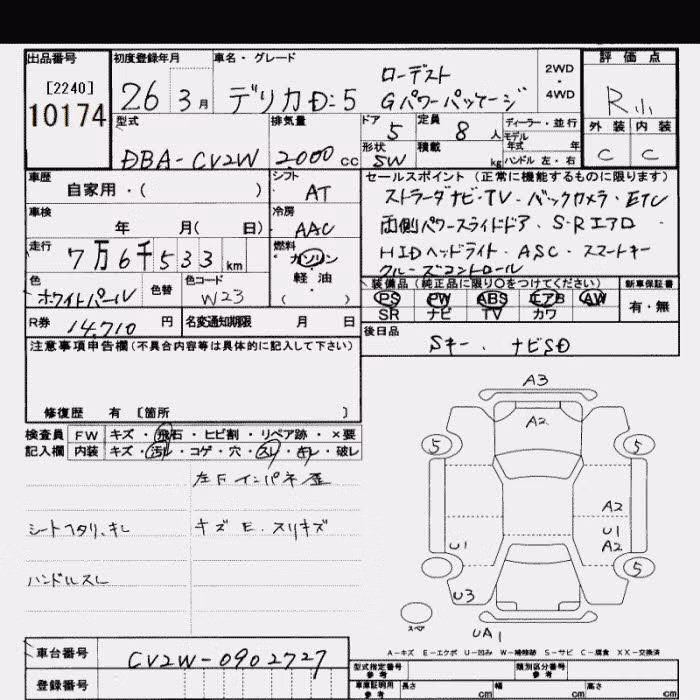 出品番号 初度登録年月 車名・グレード 評価点
[2240]
10174
26 3月 デリカD:5 ローデスト Gパワーパッケージ 2WD・4WD R小
型式 排気量 ドア 定員 ディーラー・並行 外装 内装
DBA-CV2W 2000cc 5 8人 モデル年式 年 C C
形状 積載 ハンドル 左・右
SW kg
車歴 シフト セールスポイント(正常に機能するものに限ります)
自家用・( ) AT ストラーダナビ・TV・バックカメラ・ETC
車検 冷房 両側パワースライドドア・S-Rエアロ・
年 月( 日) AAC HIDヘッドライト・ASC・スマートキー
走行 燃料 クルーズコントロール
7万6千533km ガソリン・軽油・( )
色 色替 色コード 装備品(純正品に限り○をつけてください) 新車保証書
ホワイトパール W23 PS PW ABS エアB AW 有・無
SR ナビ TV カワ
R券 14,710円 名変通知期限 月 日 後日品
Sキー、ナビSD
注意事項申告欄(不具合内容等は具体的に記入して下さい)
修復歴 有 [箇所 ]
検査員 FW キズ・飛石・ヒビ割・リペア跡・×要
記入欄 内装 キズ・汚レ・コゲ・穴・スレ・キレ・破レ
左Fインパネ歪
シートヘタリ、キレ キズE、スリキズ
ハンドルスレ
A3
A2
5 5
A2
U1 U1
A2
5
U3
スペア UA1
A-キズ E-エクボ U-凹み W-補修跡 S-サビ C-腐食 XX-交換済
車台番号 CV2W-0902727
登録番号
型式指定番号 参考 類別区分番号 参考
車庫証明用 参考 長さ cm 幅 cm 高さ cm